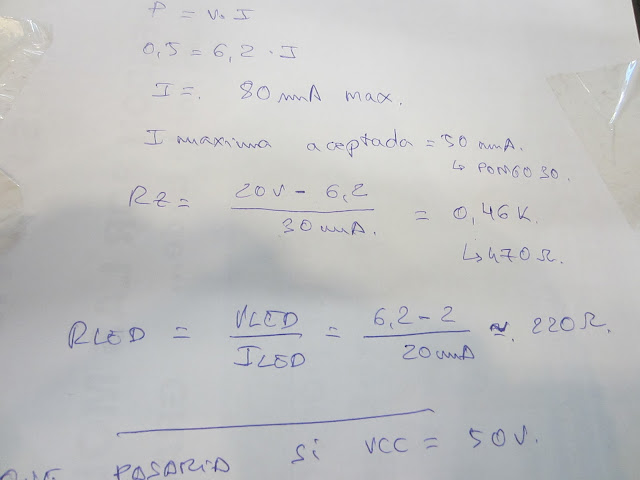 P = V. I
0,5 = 6,2 · I
I =. 80 mA max.
I maxima aceptada = 50 mA.
↳ PONGO 30.
RZ = 20V - 6,2 / 30 mA. = 0,46 K.
↳ 470 Ω.
RLED = VLED / ILED = 6,2 - 2 / 20 mA ≈. 220 Ω.
PASARIA si VCC = 50V.